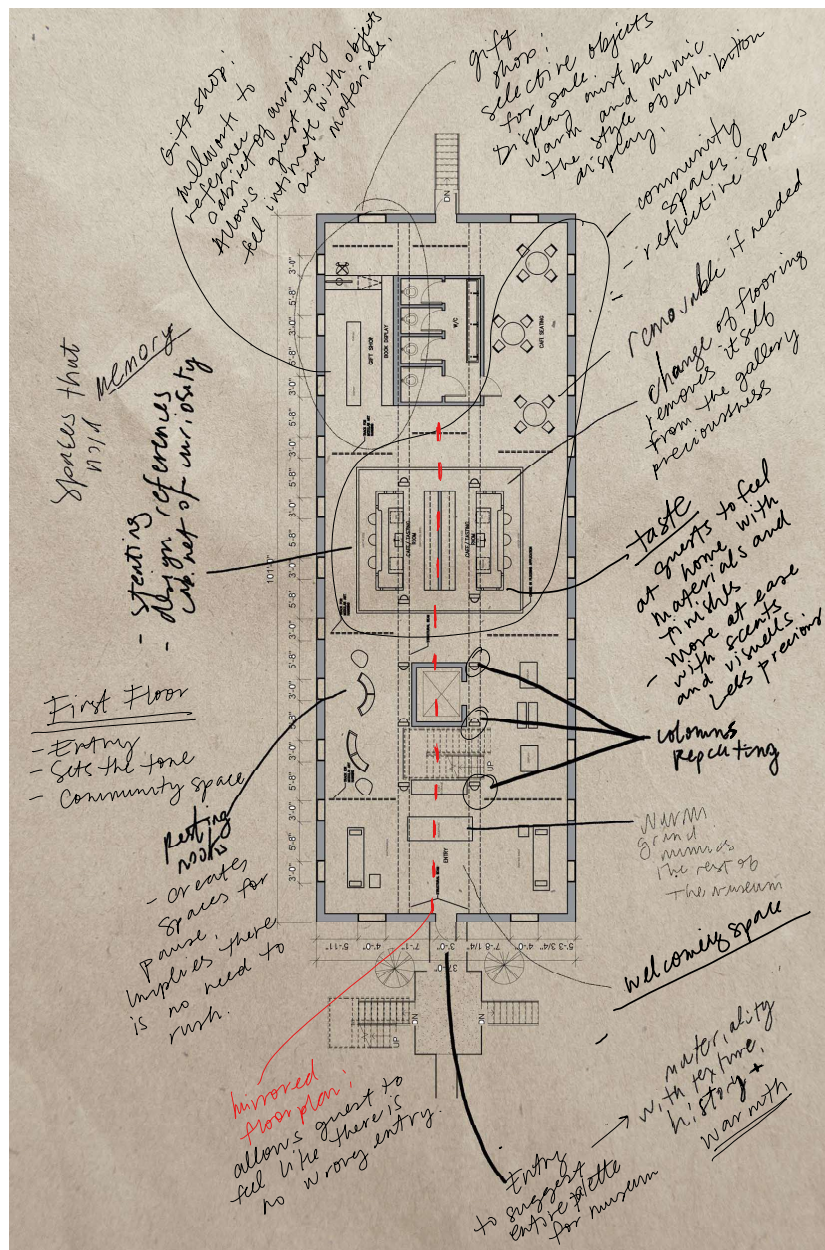 Gift shop:
millwork to
reference
cabinet of curiosity
Allows guest to
feel intimate with objects
and materials.
gift
shop:
selective objects
for sale.
Display must be
warm and mimic
the style of exhibition
display.
community
spaces.
- reflective spaces
removable if needed
change of flooring
removes itself
from the gallery
preciousness
spaces that
hold
memory
- seating
design references
- cabinet of curiosity
taste
- guests to feel
at home with
materials and
finishes
- more at ease
with scents
and visuals
Less precious
columns
Repeating
First Floor
- Entry
- Sets the tone
- Community space
resting
nooks
- creates
spaces for
pause.
Implies there
is no need to
rush.
warm
grand
mimics
the rest of
the museum
welcoming space
materiality
with texture,
history +
warmth
mirrored
floorplan:
allows guest to
feel like there is
no wrong entry.
Entry
to suggest
entire palette
for museum
DN
W/C
GIFT SHOP
BOOK DISPLAY
CAFE SEATING
CAFE / TASTING
ROOM
CAFE / TASTING
ROOM
UP
ENTRY
101'-0"
3'-0"
5'-8"
3'-0"
5'-8"
3'-0"
5'-8"
3'-0"
5'-8"
3'-0"
5'-8"
3'-0"
5'-8"
3'-0"
5'-8"
3'-0"
5'-8"
3'-0"
5'-11"
4'-0"
7'-1"
3'-0"
7'-8 1/4"
4'-0"
5'-3 3/4"
37'-0"
DN
DN
UP